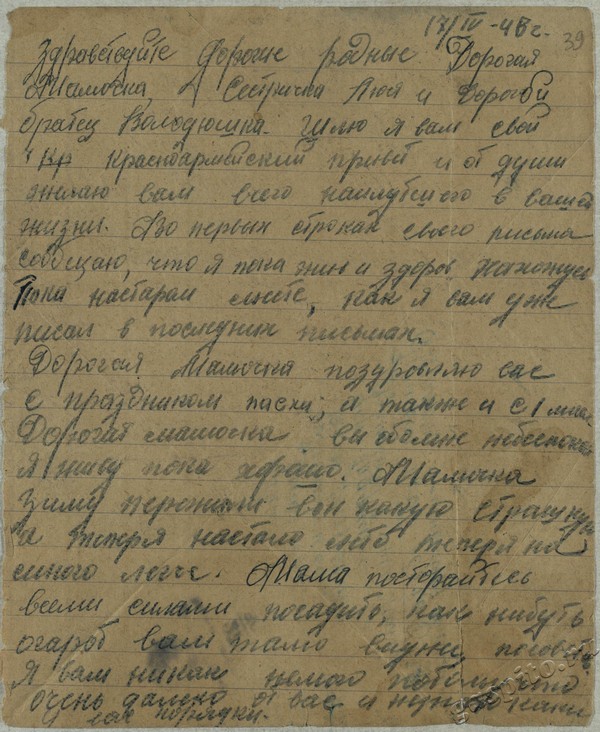 17/IV-43г.
39
Здравствуйте Дорогие родные Дорогая
Мамочка, Сестричка Люся и дорогой
братец Володюшка. Шлю я вам свой
Красноармейский привет и от души
желаю вам всего наилутшего в вашей
жизни. Во первых строках своего письма
сообщаю, что я пока жив и здоров Нахожусь
Пока настаром месте, как я вам уже
писал в последних письмах.
Дорогая Мамочка поздровляю вас
с праздником пасхи, а также и с 1 мая
Дорогая мамочка вы обомне
Я живу пока хорошо. Мамочка
зиму пережили вон какую страшную
а теперя настало лето теперя на
много легче. Мама посторайтесь
всеми силами посадить, как нибуть
огароб вам тамо видне,
Я вам никак
очень далеко от вас и
у вас порядки.